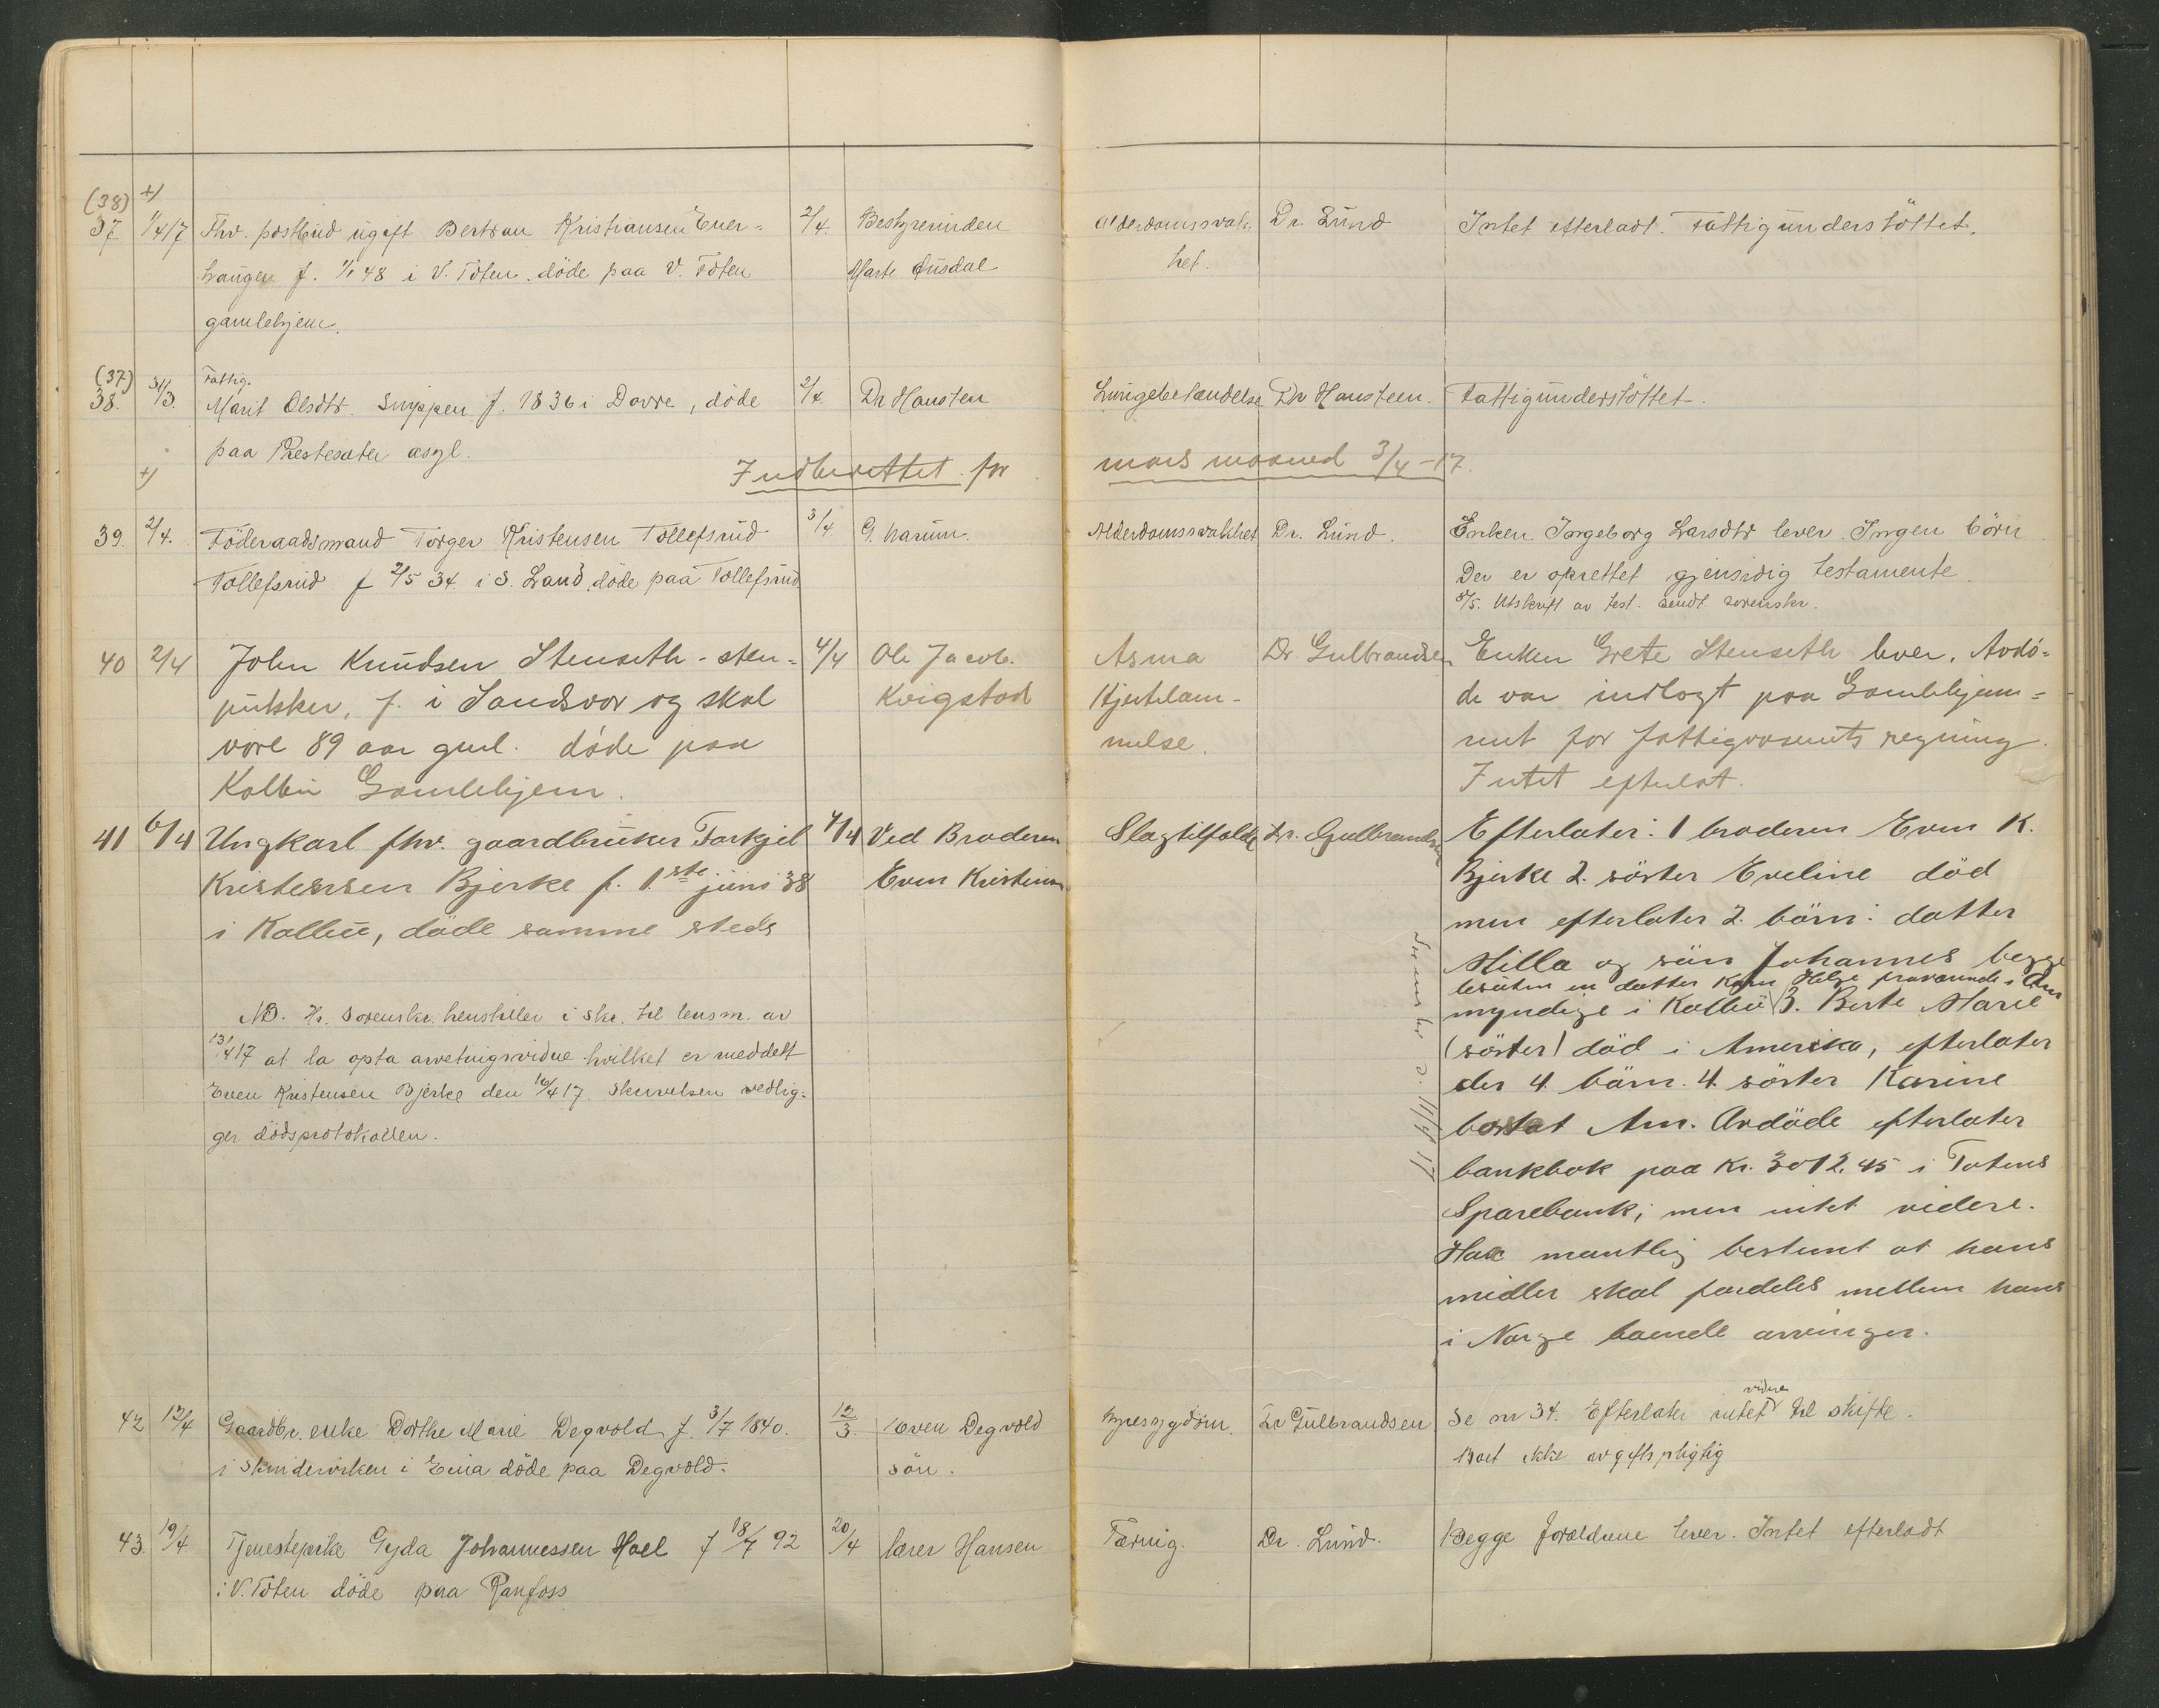 (38) +)
37. 1/4 17 Fhv. postbud ugift Bertran Kristiansen Ener= 2/4. Bestyrerinden Alderdomssvak- Dr. Lund Intet efterladt. Fattigunderstöttet.
haugen f. 1/1 48 i V. Toten. döde paa V. Toten Marte Ausdal het.
gamlehjem.
(37) Fattig.
38. 31/3. Marit Olsdtr. f. 1836 i Dovre, döde 2/4 Dr Hansten Lungebetændelse Dr Hansteen. Fattigunderstöttet.
paa Prestesæter asyl.
+) Indberettet for mars maaned 3/4-17.
39. 2/4. Föderaadsmand Torger Kristensen Tollefsrud 3/4 G. Narum. Alderdomssvakhet Dr. Lund. Enken Ingeborg Larsdtr lever. Ingen börn
Tollefsrud f 2/5 34. i S. Land, döde paa Tollefsrud Der er oprettet gjensidig testamente.
8/5. Utskrift av test. sendt sorenskr.
40 2/4 John Knudsen Stenseth - sten= 4/4 Ole Jacob. Asma Dr. Gulbrandsen Enken Grete Stenseth lever. Avdö=
pukker, f. i Sandsvær og skal Kvigstad Hjertelam- de var indlagt paa Gamlehjem=
være 89 aar gml. döde paa melse. met for fattigvæsenets regning.
Kolbu Gamlehjem. Intet efterlat.
41 6/4 Ungkarl fhv. gaardbruker Torkjel 7/4 Ved Broderen Slagtilfælde Dr. Gulbrandsen Efterlater: 1 broderen Even K.
Kristensen Bjerke f. 1.ste juni 38 Even Kristensen Bjerke 2. söster Eveline död
i Kolbu, döde samme steds men efterlater 2. börn: datter
Milla og sön Johannes begge
besuten en datter Karen Helge fraværende i Am
myndige i Kolbu 3. Berte Marie
(söster) död i Amerika, efterlater
der 4 börn. 4 söster Karine
bosat Am. Avdöde efterlater
bankbok paa Kr. 3012.45 i Totens
Sparebank; men intet videre.
Har mundtlig bestemt at hans
midler skal fordeles mellem hans
i Norge boende arvinger.
Sorenskr. d. 11/4 17
NB. Hr. Sorenskr. henstiller i skr. til lensm. av
13/4 17 at la opta arvetingsvidne hvilket er meddelt
Even Kristensen Bjerke den 16/4 17. Skrivelsen vedlig-
ger dödsprotokollen.
42 12/4 Gaardbr. enke Dorthe Marie Degvold f. 3/7 1840. 12/3. Even Degvold Nyresygdom. Dr Gulbrandsen Se nr 34. Efterlater intet videre til skifte.
i Skindeviken i Eina döde paa Degvold. sön. Boet ikke avgiftspligtig
43. 19/4. Tjenestepike Gyda Johannessen Hoel f 18/7 92 20/4 lærer Hansen Tæring. Dr. Lund. Begge forældrene lever. Intet efterladt
i V. Toten döde paa Raufoss